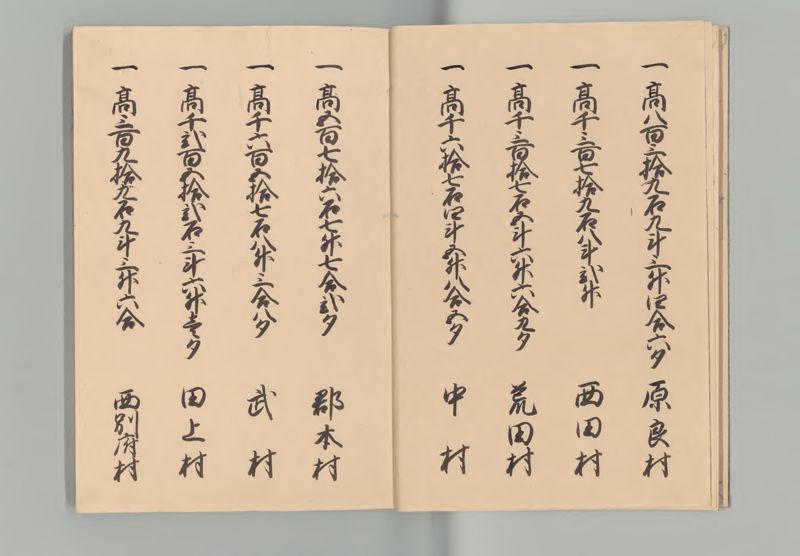 一高八百三拾九石九斗三升四合六夕 原良村
一高千三百七拾九石八斗弐升 西田村
一高千三百拾七石五斗六升六合九夕 荒田村
一高千六拾七石四斗五升八合五夕 中村
一高五百七拾六石七升七合弐夕 郡本村
一高千六百五拾七石八升三合八夕 武村
一高千弐百五拾弐石三斗六升壱夕 田上村
一高三百九拾九石九斗三升六合 西別府村